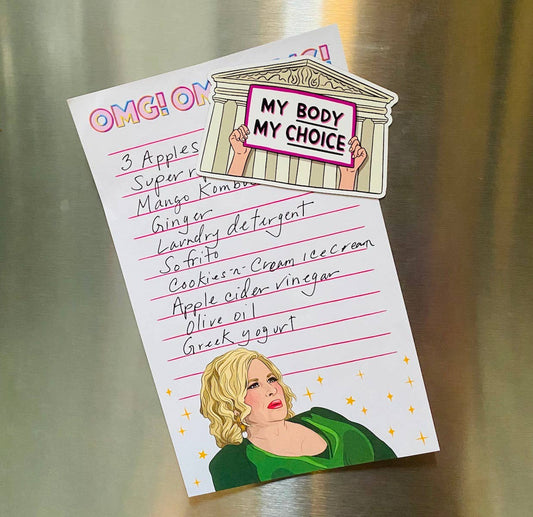 OMG! OM !
MY BODY
MY CHOICE
3 Apples
Super r
Mango Kombu
Ginger
Laundry detergent
Sofrito
Cookies-n-Cream ice cream
Apple cider vinegar
Olive oil
Greek yogurt